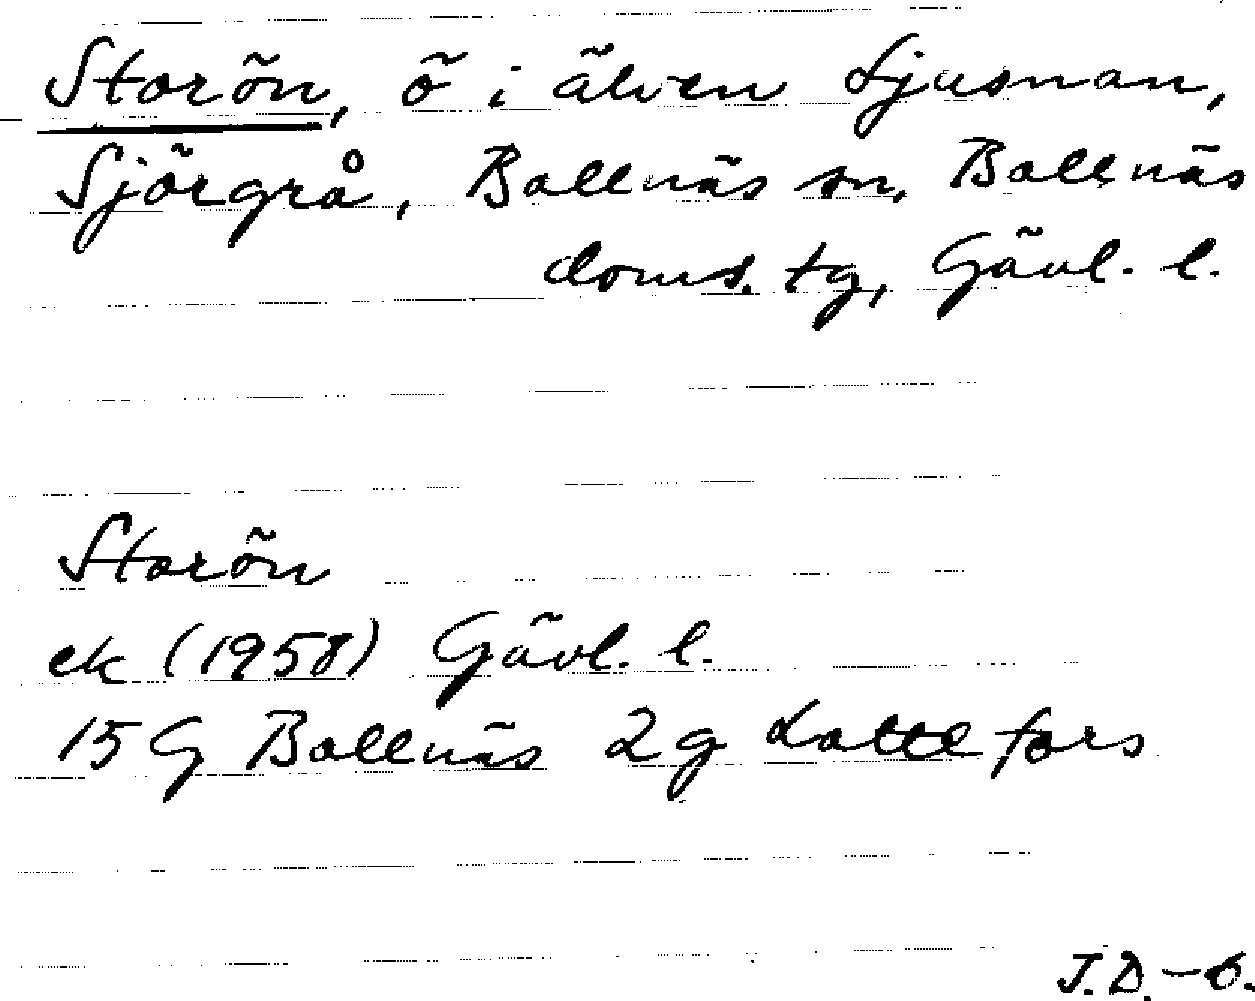 Storön, ö i älven Ljusnan,
Sjörgrå, Bollnäs sn, Bollnäs
doms. tg, Gävl. l.
Storön
ek (1958) Gävl. l.
15 G Bollnäs 2g Lottefors
J.D.-6.